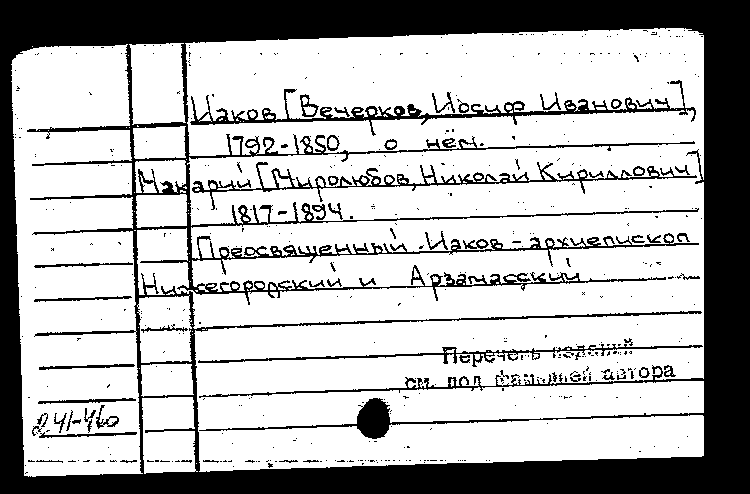 Иаков [Вечерков, Иосиф Иванович],
1792-1850, о нём.
Макарий [Миролюбов, Николай Кириллович]
1817-1894.
Преосвященный Иаков - архиепископ
Нижегородский и Арзамасский.
Перечень изданий
см. под фамилией автора
241-460